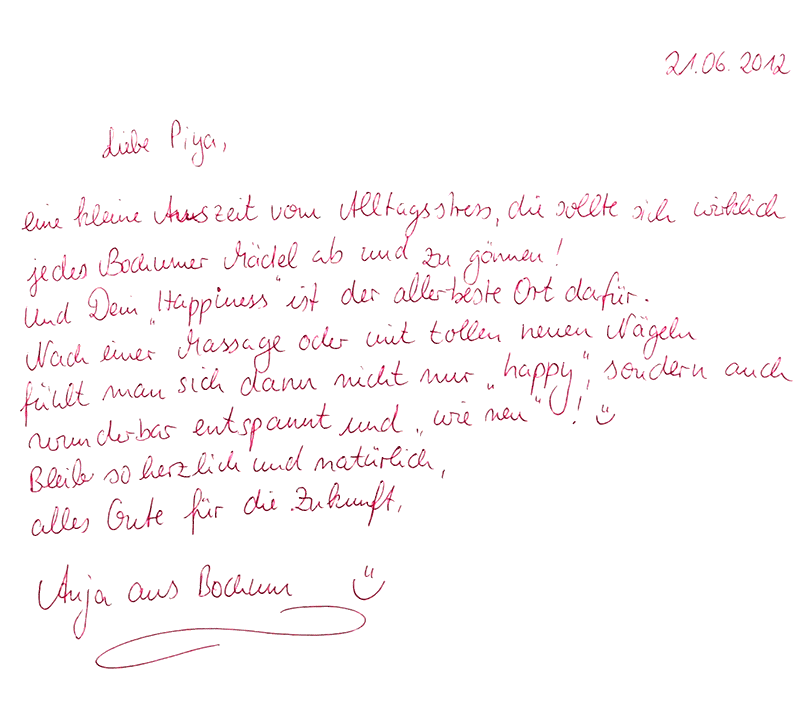 21.06.2012
Liebe Piya,
eine kleine Auszeit vom Alltagsstress, die sollte sich wirklich
jedes Bochumer Mädel ab und zu gönnen!
Und Dein „Happiness“ ist der allerbeste Ort dafür.
Nach einer Massage oder mit tollen neuen Nägeln
fühlt man sich dann nicht nur „happy“, sondern auch
wunderbar entspannt und „wie neu“!
Bleib so herzlich und natürlich,
alles Gute für die Zukunft,
Anja aus Bochum